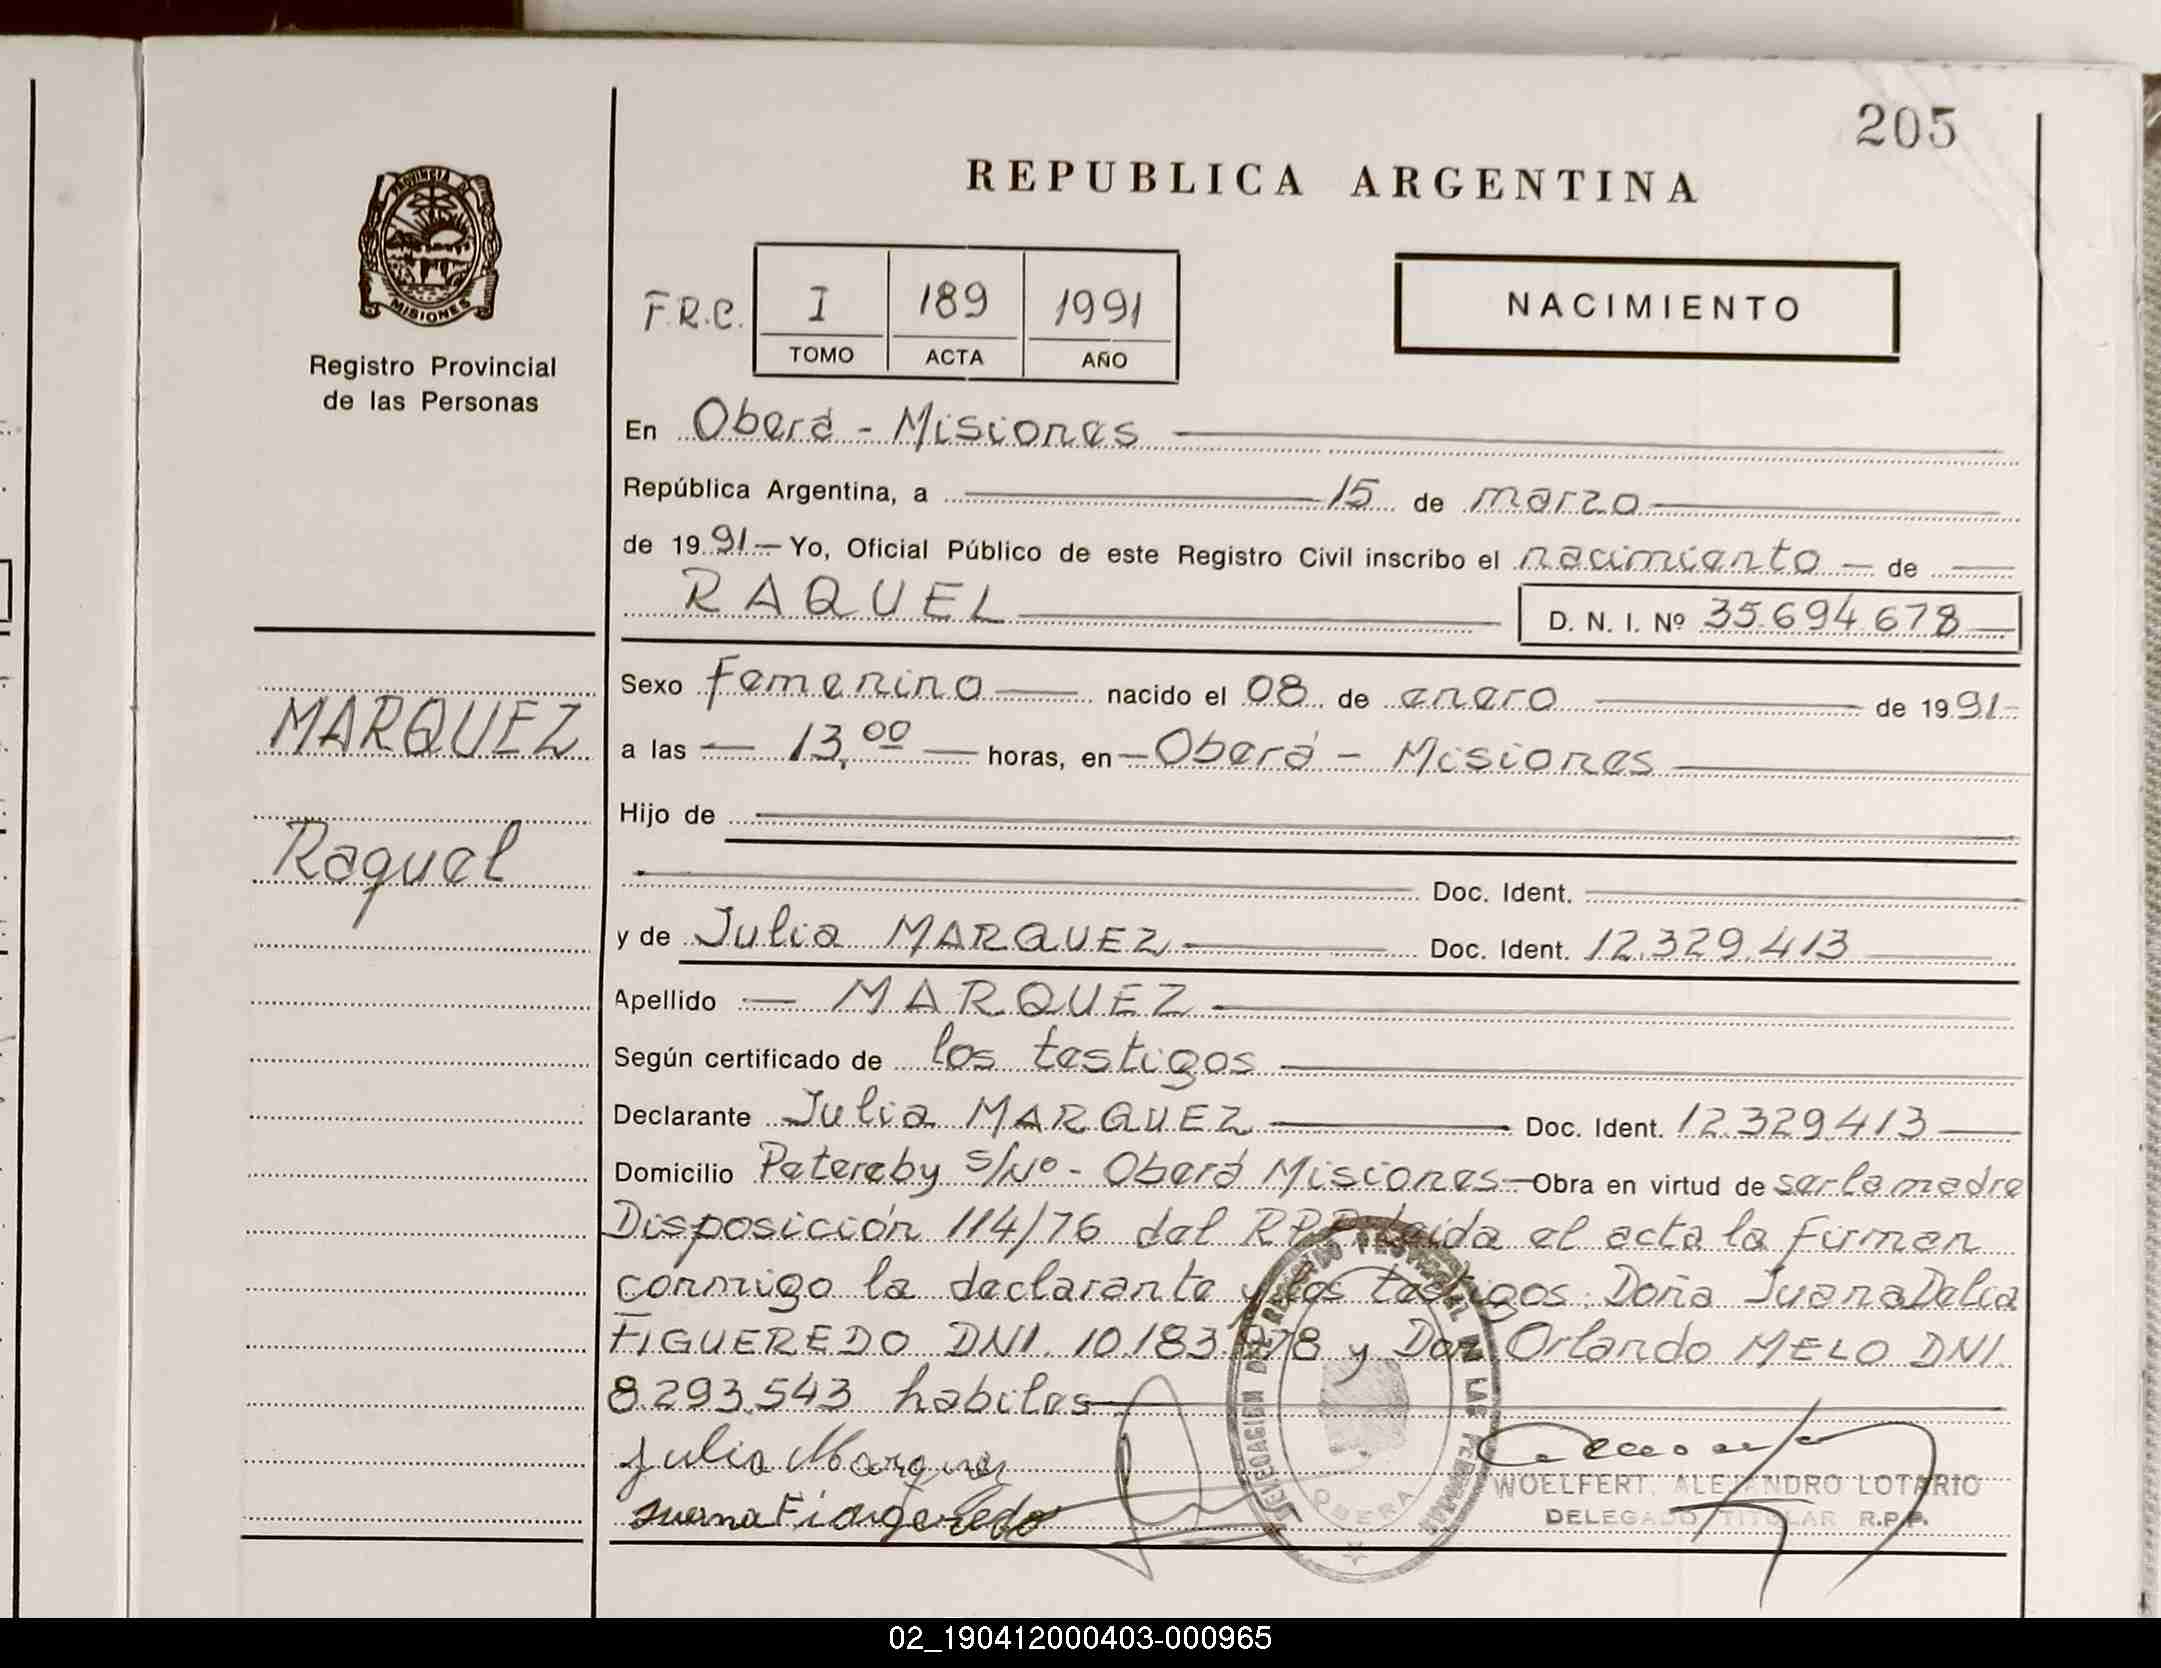 205
REPUBLICA ARGENTINA
PROVINCIA DE
MISIONES
Registro Provincial
de las Personas
F.R.C. I 189 1991
TOMO ACTA AÑO
NACIMIENTO
En Oberá - Misiones
República Argentina, a 15 de marzo
de 1991 - Yo, Oficial Público de este Registro Civil inscribo el nacimiento - de
RAQUEL D. N. I. Nº 35.694.678
MARQUEZ
Raquel
Sexo Femenino nacido el 08 de enero de 1991-
a las 13,00 horas, en - Oberá - Misiones
Hijo de
Doc. Ident.
y de Julia MARQUEZ Doc. Ident. 12.329.413
Apellido MARQUEZ
Según certificado de los testigos
Declarante Julia MARQUEZ Doc. Ident. 12.329.413
Domicilio Petereby S/Nº - Oberá Misiones - Obra en virtud de ser la madre
Disposición 114/76 del R.P.P. Leída el acta la firman
conmigo la declarante y los testigos: Doña Juana Delia
FIGUEREDO DNI. 10.183.978 y Don Orlando MELO DNI.
8.293.543 habiles
Julia Marquez
Juana Figueredo
DELEGACION DEL REGISTRO PROVINCIAL DE LAS PERSONAS
OBERA
WOELFERT, ALEJANDRO LOTARIO
DELEGADO TITULAR R.P.P.
02_190412000403-000965